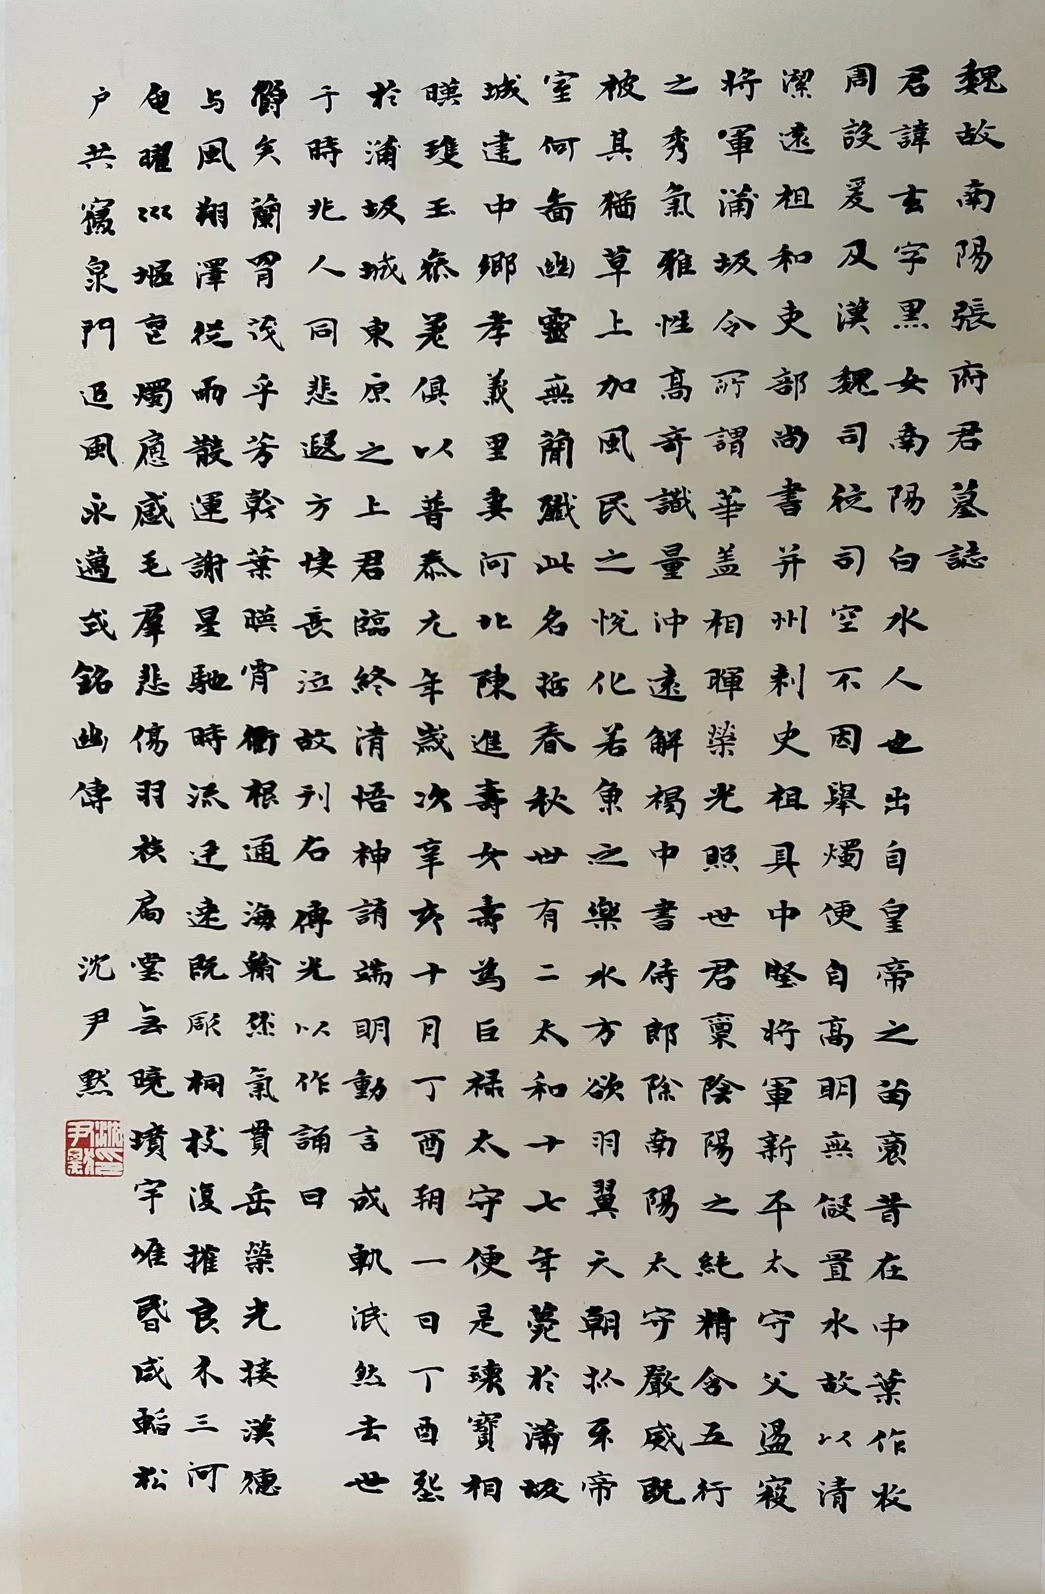 魏故南陽張府君墓誌
君諱玄字黑女南陽白水人也出自皇帝之苗裔昔在中葉作牧
周設爰及漢魏司徒司空不因舉燭便自高明無假置水故以清
潔遠祖和吏部尚書并州刺史祖具中堅將軍新平太守父盪寇
將軍蒲坂令所謂華盖相暉榮光照世君稟陰陽之純精含五行
之秀氣雅性高奇識量沖遠解褐中書侍郎除南陽太守嚴威既
被其猶草上加風民之悅化若魚之樂水方欲羽翼天朝抓牙帝
室何啚幽靈無簡殲此名括春秋世有二太和十七年薨於蒲坂
城建中鄉孝義里妻河北陳進壽女壽為巨祿太守便是瑓寶相
暎瓊玉參差俱以普泰九年歲次辛亥十月丁酉朔一日丁酉塟
於蒲坂城東原之上君臨終清悟神誚端明動言成軌泯然去世
于時兆人同悲遐方悽長泣故刊石傳光以作誦曰
欝矣蘭胃茂乎芳幹葉暎霄衢根通海翰烝氣貫岳榮光接漢德
与風翔澤從雨散運謝星馳時流迅速既彫桐枝復摧良木三河
奄曜巛堀喪燭痛感毛羣悲傷羽族扃堂無曉墳宇唯昏咸輼松
户共寢泉門追風永邁式銘幽傳
沈尹默
沈尹默印